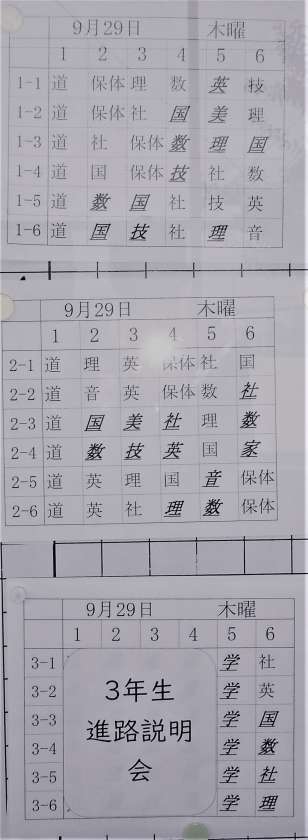 9月29日 木曜
1 2 3 4 5 6
1-1 道 保体 理 数 英 技
1-2 道 保体 社 国 美 理
1-3 道 社 保体 数 理 国
1-4 道 国 保体 技 社 数
1-5 道 数 国 社 技 英
1-6 道 国 技 社 理 音
9月29日 木曜
1 2 3 4 5 6
2-1 道 理 英 保体 社 国
2-2 道 音 英 保体 数 社
2-3 道 国 美 社 理 数
2-4 道 数 技 英 国 家
2-5 道 英 理 国 音 保体
2-6 道 英 社 理 数 保体
9月29日 木曜
1 2 3 4 5 6
3-1 学 社
3-2 3年生 学 英
3-3 進路説明 学 国
3-4 会 学 数
3-5 学 社
3-6 学 理